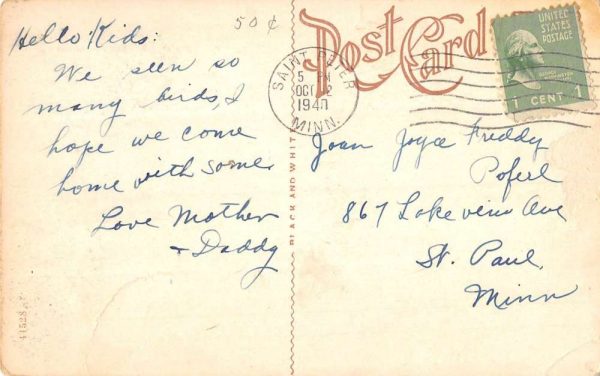 Hello Kids:
We seen so
many birds, I
hope we come
home with some.
Love Mother
+ Daddy
50¢
Post Card
SAINT PETER
5 PM
OCT 2
1940
MINN.
UNITED
STATES
POSTAGE
1 CENT 1
BLACK AND WHITE
Joan Joyce Freddy
Poferl
867 Lakeview Ave
St. Paul,
Minn
41528